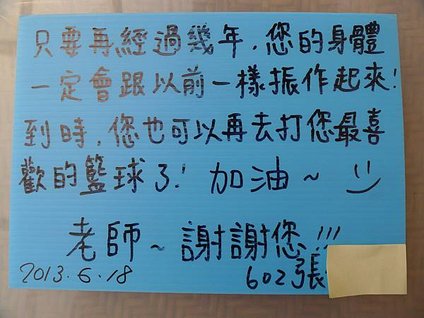 只要再經過幾年，您的身體
一定會跟以前一樣振作起來！
到時，您也可以再去打您最喜
歡的籃球了！加油~
老師~謝謝您!!!
2013.6.18
602張